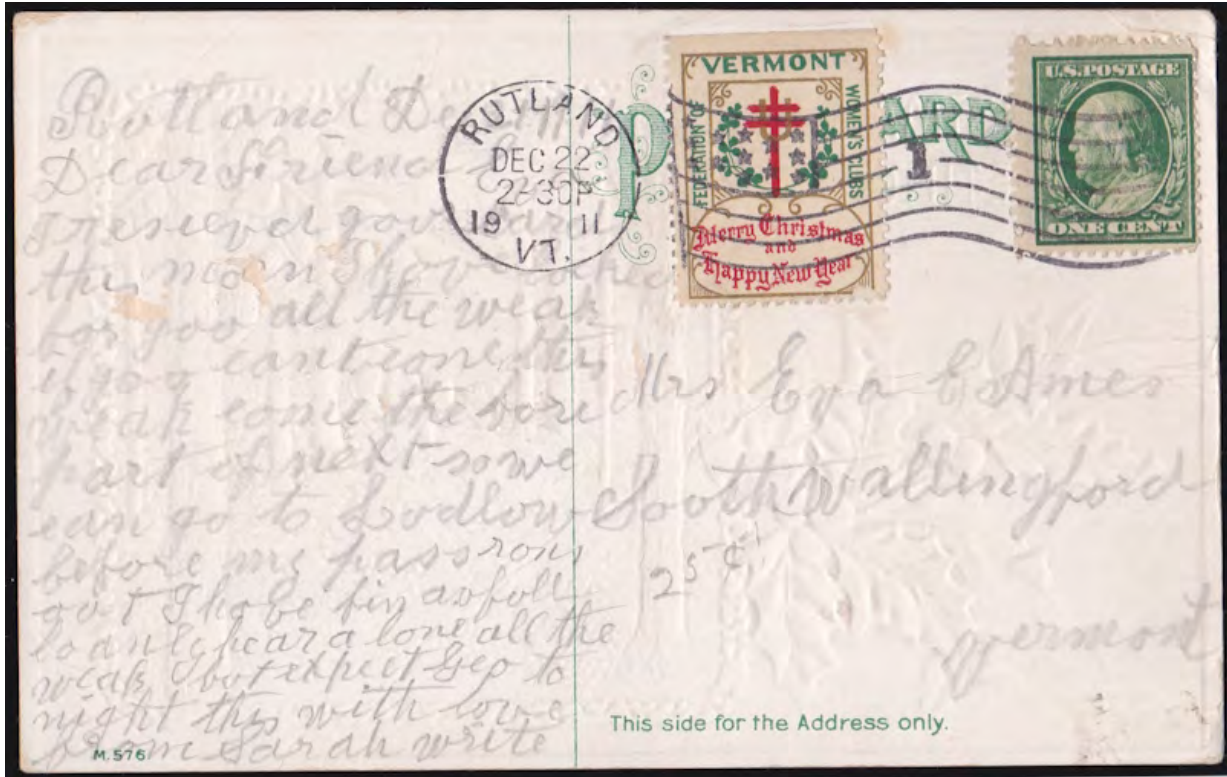 Dear Friend
this
for you all the weak
if you cant come this
weak come the fore
part of next so we
can go to Ludlow
before my pass rons
out I have bin awfoll
alone all the
weak but expect Geo to
night this with love
from Sarah write
M.576
RUTLAND
DEC 22
2-30P
19 11
VT.
VERMONT
FEDERATION OF
WOMEN'S CLUBS
Merry Christmas
and
Happy New Year
1
U.S. POSTAGE
ONE CENT
Mrs Eva E Ames
South Wallingford
25ct
Vermont
This side for the Address only.